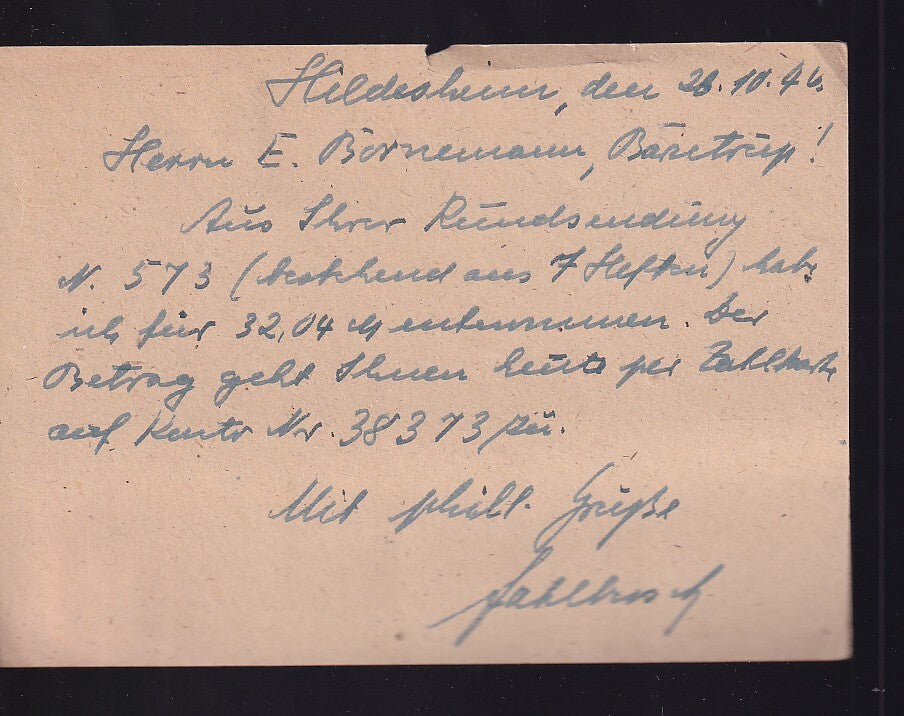 Hildesheim, den 26.10.46.
Herrn E. Bornemann, Barntrup!
Aus Ihrer Rundsendung
N. 573 (bestehend aus 7 Heften) habe
ich für 32,04 M entnommen. Der
Betrag geht Ihnen heute per Zahlkarte
auf Konto Nr. 38373 zu.
Mit phil. Grüße